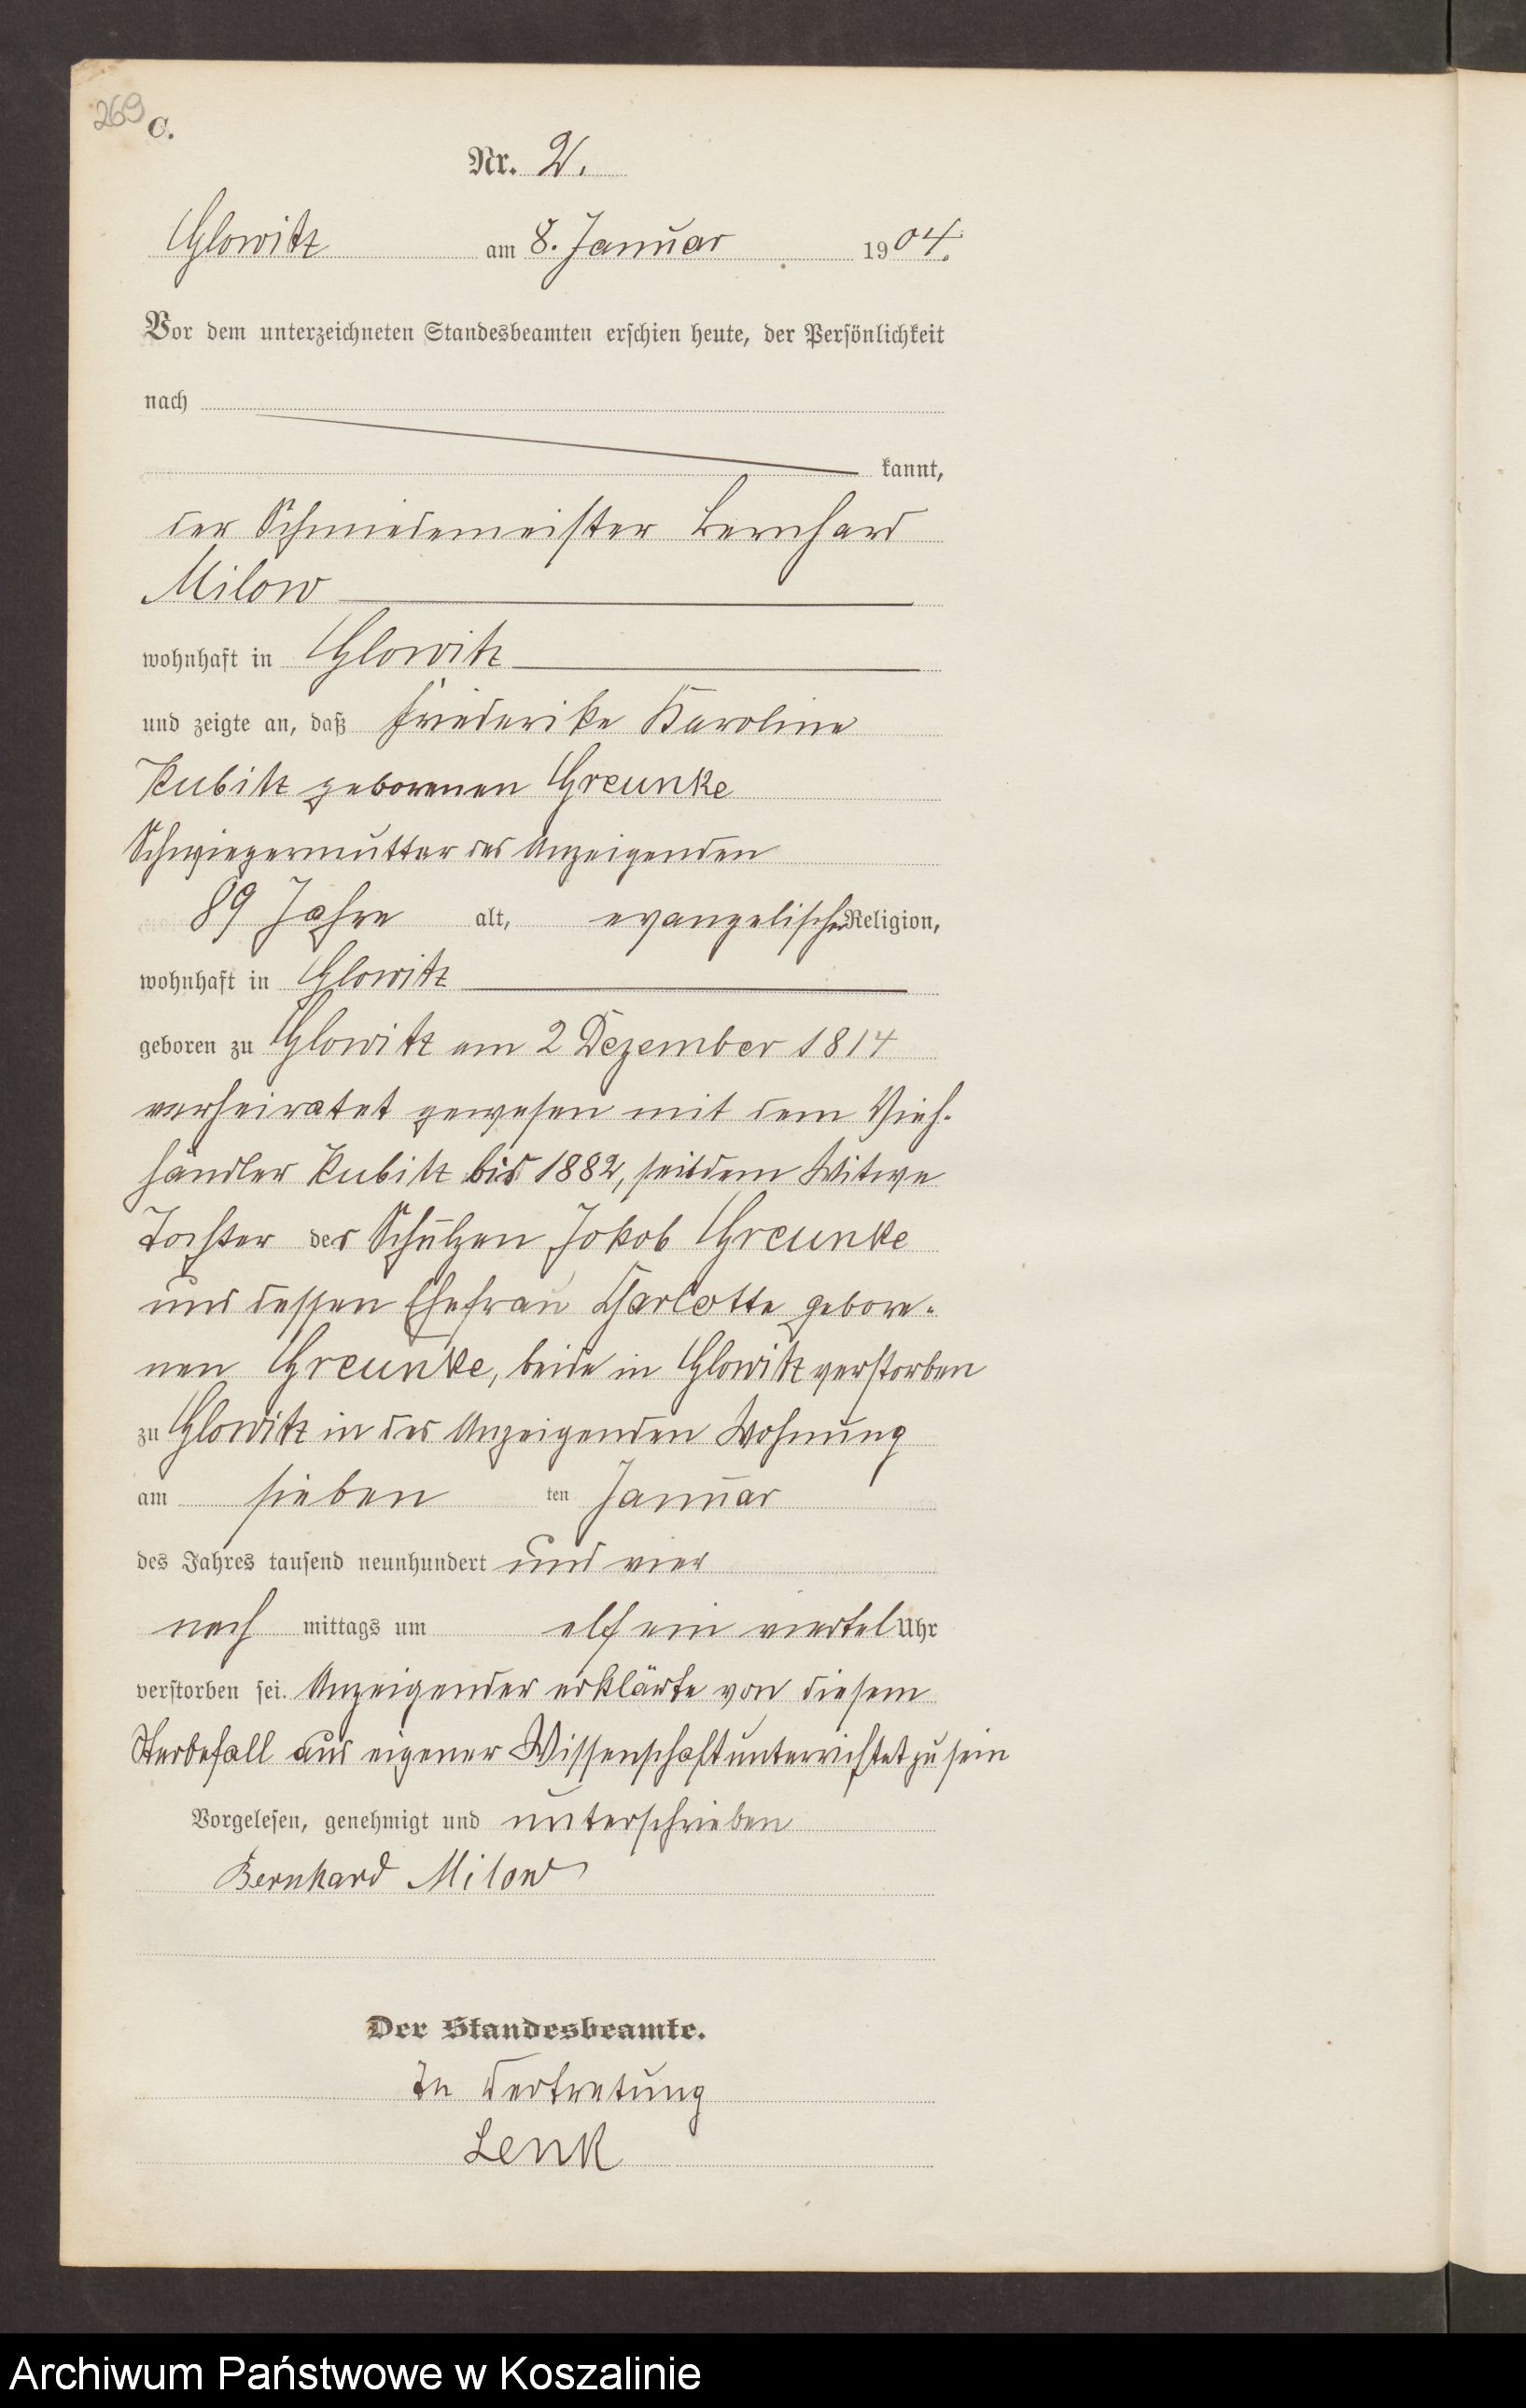 269
C.
Nr. 2.
Glowitz am 8. Januar 1904.
Vor dem unterzeichneten Standesbeamten erschien heute, der Persönlichkeit
nach
kannt,
der Schmiedemeister Bernhard
Milow
wohnhaft in Glowitz
und zeigte an, daß Friederike Karoline
Kubitz geborenen Greunke
Schwiegermutter des Anzeigenden
89 Jahre alt, evangelischer Religion,
wohnhaft in Glowitz
geboren zu Glowitz am 2 Dezember 1814
verheiratet gewesen mit dem Vieh-
händler Kubitz bis 1882, seitdem Witwe
Tochter des Schulzen Jakob Greunke
und dessen Ehefrau Charlotte gebore-
nen Greunke, beide in Glowitz verstorben
zu Glowitz in des Anzeigenden Wohnung
am sieben ten Januar
des Jahres tausend neunhundert und vier
nach mittags um elf ein viertel Uhr
verstorben sei. Anzeigender erklärte von diesem
Sterbefall aus eigener Wissenschaft unterrichtet zu sein
Vorgelesen, genehmigt und unterschrieben
Bernhard Milow
Der Standesbeamte.
In Vertretung
Lenk
Archiwum Państwowe w Koszalinie